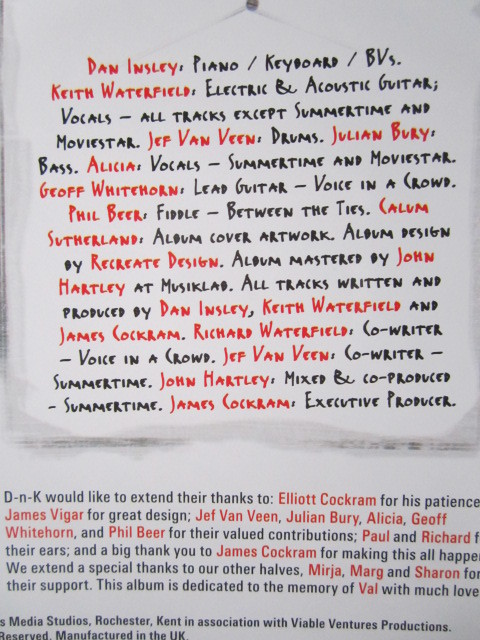 Dan Insley: Piano / Keyboard / BVs.
Keith Waterfield: Electric & Acoustic Guitar;
Vocals – all tracks except Summertime and
Moviestar. Jef Van Veen: Drums. Julian Bury:
Bass. Alicia: Vocals – Summertime and Moviestar.
Geoff Whitehorn: Lead Guitar – Voice in a Crowd.
Phil Beer: Fiddle – Between the Ties. Calum
Sutherland: Album cover artwork. Album design
by Recreate Design. Album mastered by John
Hartley at Musiklab. All tracks written and
produced by Dan Insley, Keith Waterfield and
James Cockram. Richard Waterfield: Co-writer
– Voice in a Crowd. Jef Van Veen: Co-writer –
Summertime. John Hartley: Mixed & co-produced
- Summertime. James Cockram: Executive Producer.
D-n-K would like to extend their thanks to: Elliott Cockram for his patience
James Vigar for great design; Jef Van Veen, Julian Bury, Alicia, Geoff
Whitehorn, and Phil Beer for their valued contributions; Paul and Richard f
their ears; and a big thank you to James Cockram for making this all happe
We extend a special thanks to our other halves, Mirja, Marg and Sharon fo
their support. This album is dedicated to the memory of Val with much love
s Media Studios, Rochester, Kent in association with Viable Ventures Productions.
Reserved. Manufactured in the UK.